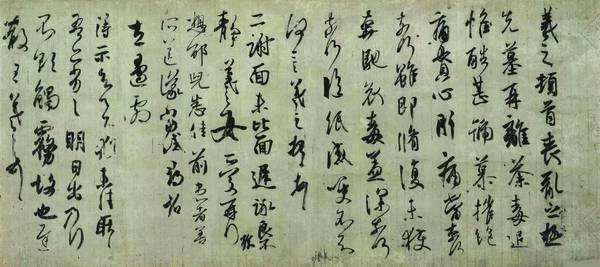 羲之頓首喪亂之極
先墓再離荼毒追
惟酷甚號慕摧絕
痛貫心肝痛當奈何
奈何雖即脩復未獲
奔馳哀毒益深奈何
奈何臨紙感哽不知
何言羲之頓首頓首
二謝面未比面遲詠良不
靜羲之女愛再拜
想邵兒悉佳前患者善
所送議當
左邊劇
得示知足下猶未佳耿
耿吾亦劣劣明日出乃行
不欲觸霧故也遲
散王羲之頓首